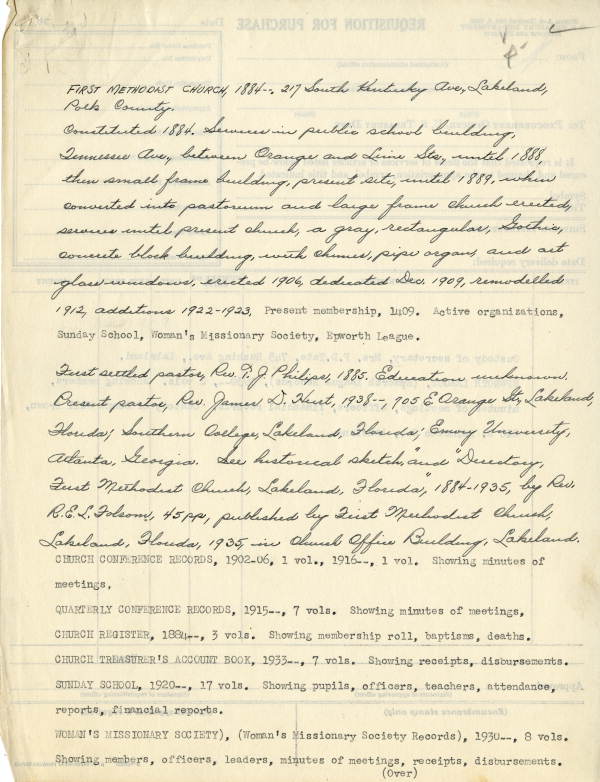 FIRST METHODIST CHURCH, 1884--. 217 South Kentucky Ave., Lakeland,
Polk County.
Constituted 1884. Services in public school building,
Tennessee Ave., between Orange and Lime Sts., until 1888,
then small frame building, present site, until 1889, when
converted into pastorium and large frame church erected,
services until present church, a gray, rectangular, Gothic,
concrete block building, with chimes, pipe organ, and art
glass windows, erected 1906, dedicated Dec. 1909, remodelled
1912, additions 1922-1923, Present membership, 1409. Active organizations,
Sunday School, Woman's Missionary Society, Epworth League.
First settled pastor, Rev. T. J. Philips, 1885. Education unknown.
Present pastor, Rev. James D. Hurt, 1938--, 905 E Orange St., Lakeland,
Florida; Southern College, Lakeland, Florida; Emory University,
Atlanta, Georgia. See historical sketch, "and "Directory,
First Methodist Church, Lakeland, Florida", 1884-1935, by Rev.
R.E.L. Folsom, 45pp, published by First Methodist Church,
Lakeland, Florida, 1935 in Church Office Building, Lakeland.
CHURCH CONFERENCE RECORDS, 1902-06, 1 vol., 1916--, 1 vol. Showing minutes of
meetings.
QUARTERLY CONFERENCE RECORDS, 1915--, 7 vols. Showing minutes of meetings,
CHURCH REGISTER, 1884--, 3 vols. Showing membership roll, baptisms, deaths.
CHURCH TREASURER'S ACCOUNT BOOK, 1933--, 7 vols. Showing receipts, disbursements.
SUNDAY SCHOOL, 1920--, 17 vols. Showing pupils, officers, teachers, attendance,
reports, financial reports.
WOMAN'S MISSIONARY SOCIETY), (Woman's Missionary Society Records), 1930--, 8 vols.
Showing members, officers, leaders, minutes of meetings, receipts, disbursements.
(Over)